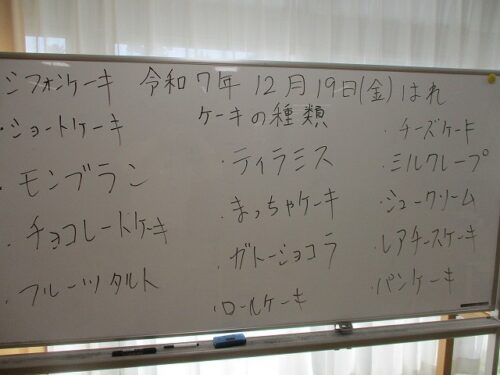 シフォンケーキ 令和7年 12月19日(金) はれ
ケーキの種類
・ショートケーキ
・モンブラン
・チョコレートケーキ
・フルーツタルト
・ティラミス
・まっちゃケーキ
・ガトーショコラ
・ロールケーキ
・チーズケーキ
・ミルクレープ
・シュークリーム
・レアチーズケーキ
・パンケーキ